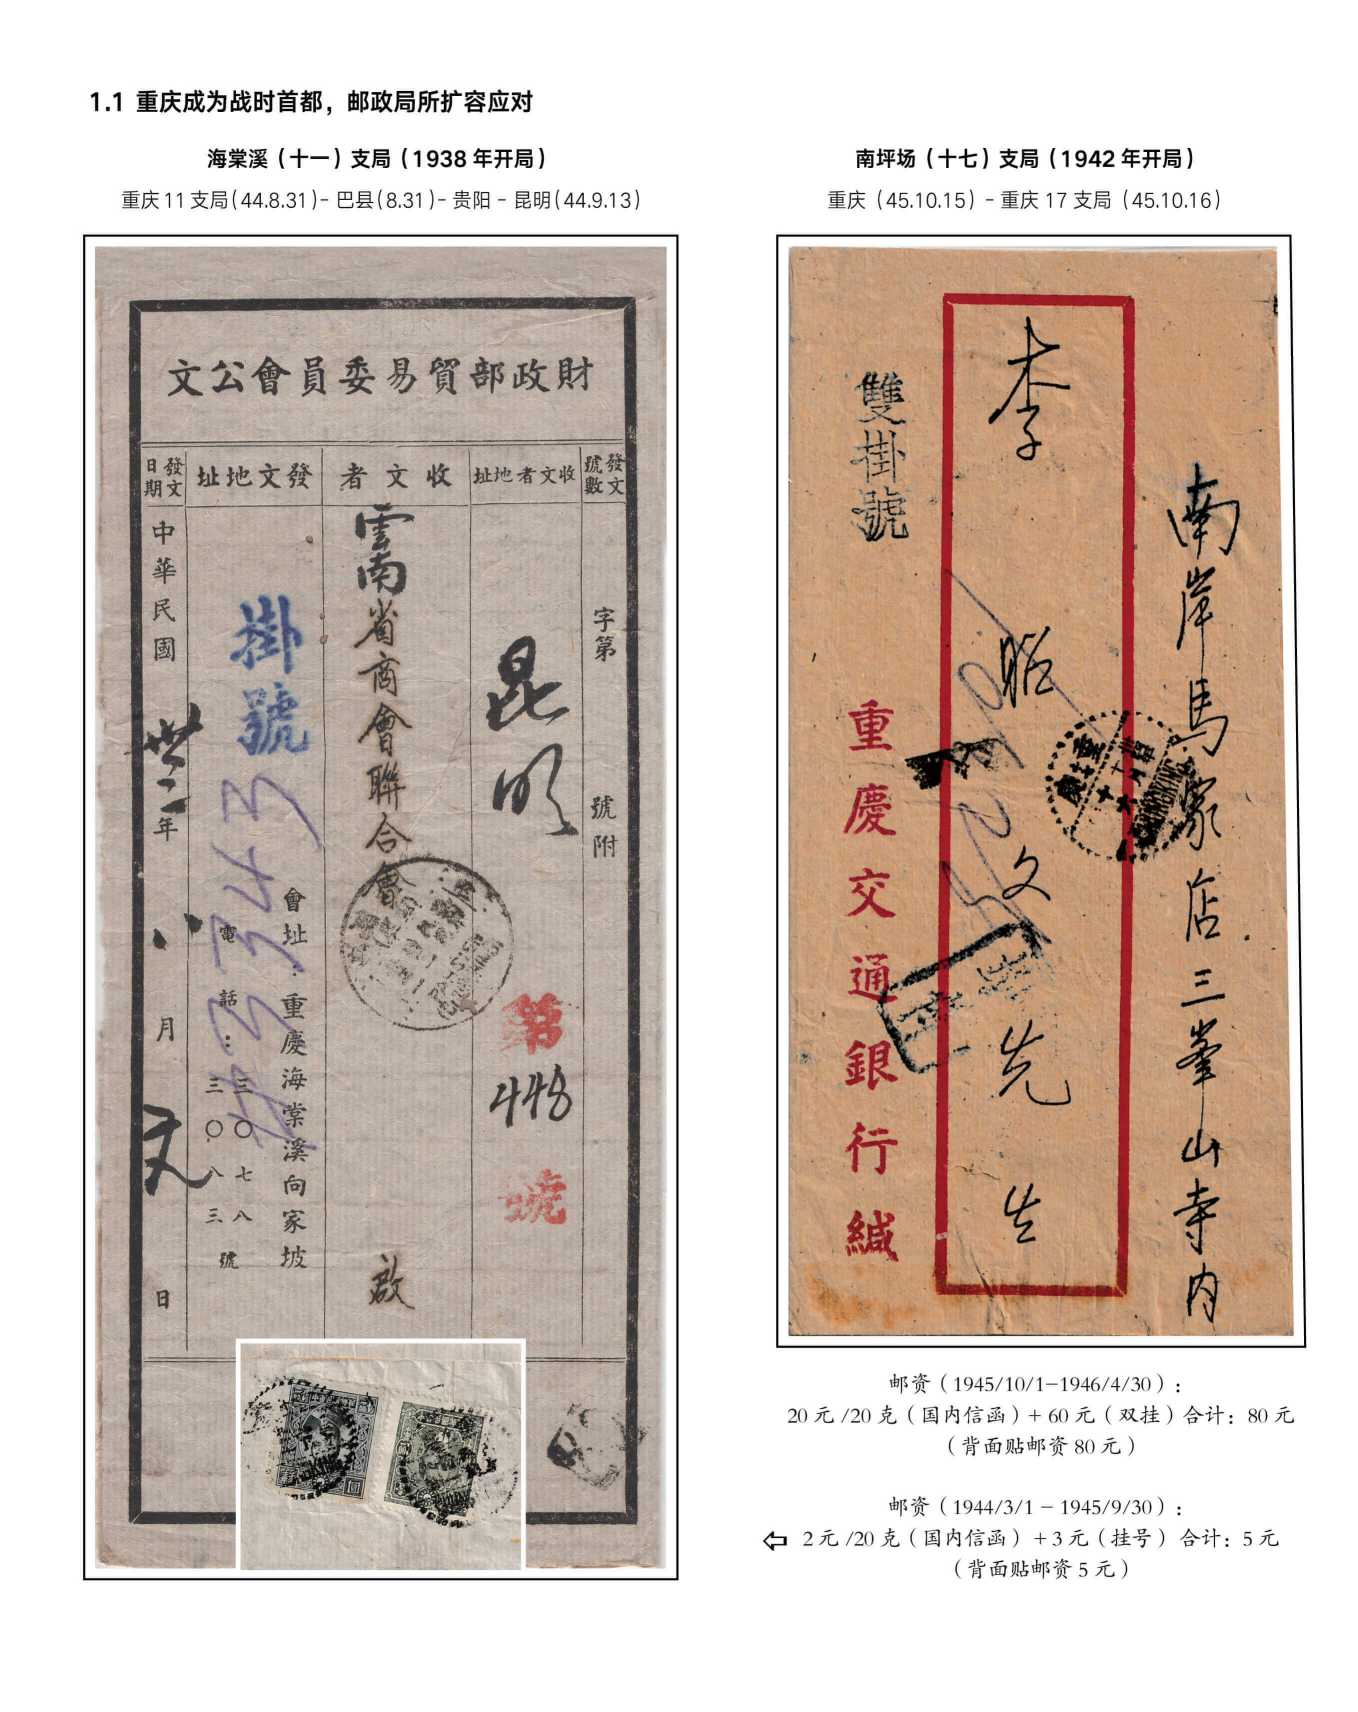 1.1 重庆成为战时首都，邮政局所扩容应对
海棠溪（十一）支局（1938 年开局）
重庆 11 支局（44.8.31）- 巴县（8.31）- 贵阳 - 昆明（44.9.13）
文公會員委易貿部政財
發文號數
字第
號附
址地者文收
昆明
第
448
號
者文收
雲南省商會聯合會
啟
址地文發
掛號
73343
會址：重慶海棠溪向家坡
電話：三〇七八
三〇八三號
發文日期
中華民國卅三年八月
日
南坪场（十七）支局（1942 年开局）
重庆（45.10.15）- 重庆 17 支局（45.10.16）
南岸馬家店三峯山寺内
李
文先生
雙掛號
重慶交通銀行緘
邮资（1945/10/1-1946/4/30）：
20 元 /20 克（国内信函）+ 60 元（双挂）合计：80 元
（背面贴邮资 80 元）
邮资（1944/3/1 - 1945/9/30）：
2 元 /20 克（国内信函）+ 3 元（挂号）合计：5 元
（背面贴邮资 5 元）